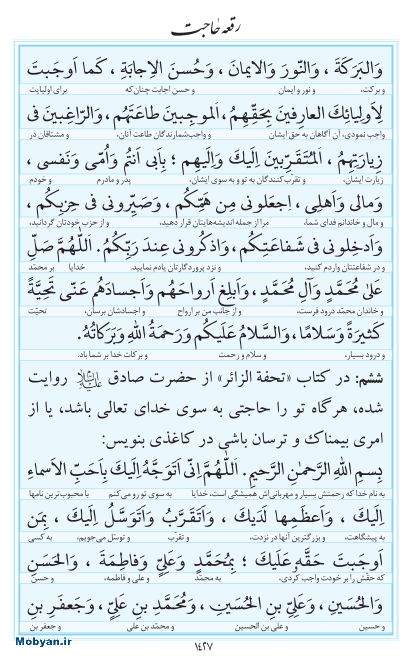 رقعه حاجت
وَالبَرَكَةَ ، وَالنّورَ وَالايمانَ ، وَحُسنَ الاِجابَةِ ، كَما اَوجَبتَ
و بركت، و نور و ايمان و حسن اجابت چنان‌كه براى اوليايت
لِاَولِيائِكَ العارِفينَ بِحَقِّهِمُ ، المُوجِبينَ طاعَتَهُم ، وَالرّاغِبينَ فى
واجب نمودى، آن آگاهان به حق ايشان و واجب‌شمارندگان طاعت آنان، و مشتاقان در
زِيارَتِهِمُ ، المُتَقَرِّبينَ اِلَيكَ وَاِلَيهِم ؛ بِاَبى اَنتُم وَاُمّى وَنَفسى ،
زيارت ايشان، و تقرب‌كنندگان به تو و به سوى ايشان، پدر و مادرم و خودم
وَمالى وَاَهلى ، اِجعَلونى مِن هَمِّكُم ، وَصَيِّرونى فى حِزبِكُم ،
و مال و خاندانم فداى شما، مرا از جمله انديشه‌هايتان قرار دهيد، و از حزب خودتان گردانيد،
وَاَدخِلونى فى شَفاعَتِكُم ، وَاذكُرونى عِندَ رَبِّكُم. اَللّٰهُمَّ صَلِّ
و در شفاعتتان واردم كنيد، و نزد پروردگارتان يادم نماييد. خدايا بر محمّد
عَلىٰ مُحَمَّدٍ وَآلِ مُحَمَّدٍ ، وَاَبلِغ اَرواحَهُم وَاَجسادَهُم عَنّى تَحِيَّةً
و خاندان محمّد درود فرست، و از جانب من بر ارواح و اجسادشان برسان، تحيّت
كَثيرَةً وَسَلامًا ، وَالسَّلامُ عَلَيكُم وَرَحمَةُ اللهِ وَبَرَكاتُهُ.
و درود بسيار، و سلام و رحمت و بركات خدا بر شما باد.
ششم: در كتاب «تحفة الزائر» از حضرت صادق روايت
شده، هرگاه تو را حاجتى به سوى خداى تعالى باشد، يا از
امرى بيمناك و ترسان باشى در كاغذى بنويس:
بِسمِ اللهِ الرَّحمٰنِ الرَّحيمِ. اَللّٰهُمَّ اِنّى اَتَوَجَّهُ اِلَيكَ بِاَحَبِّ الاَسماءِ
به نام خدا كه رحمتش بسيار و مهربانى‌اش هميشگى است، خدايا به سوى تو رو مى‌كنم با محبوب‌ترين نامها
اِلَيكَ ، وَاَعظَمِها لَدَيكَ ، وَاَتَقَرَّبُ وَاَتَوَسَّلُ اِلَيكَ ، بِمَن
به پيشگاهت، و بزرگترين آنها در نزدت، و تقرّب و توسّل مى‌جويم، به كسى
اَوجَبتَ حَقَّهُ عَلَيكَ ؛ بِمُحَمَّدٍ وَعَلِىٍّ وَفاطِمَةَ ، وَالحَسَنِ
كه حقش را بر خودت واجب كردى، به محمّد و على و فاطمه، و حسن
وَالحُسَينِ ، وَعَلِىِّ بنِ الحُسَينِ ، وَمُحَمَّدِ بنِ عَلِىٍّ ، وَجَعفَرِ بنِ
و حسين و على بن الحسين و محمّد بن على و جعفر بن
١٤٢٧
Mobyan.ir